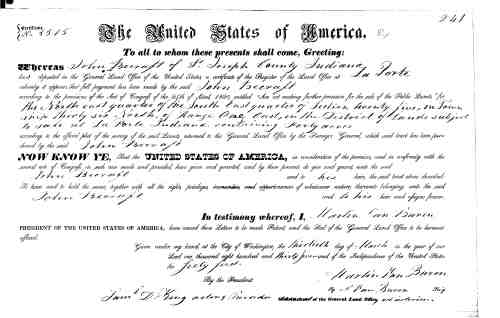 241
Certificate
The United States of America,
To all to whom these presents shall come, Greeting:
Whereas John Becraft of St. Joseph County Indiana
has deposited in the General Land Office of the United States a certificate of the Register of the Land Office at La Porte
whereby it appears that full payment has been made by the said John Becraft
according to the provisions of the Act of Congress of the 24th of April, 1820, entitled "An Act making further provision for the sale of the Public Lands" for
the North east quarter of the South East quarter of Section twenty five, in Town
ship thirty six North, of Range One East, in the District of Lands subject
to sale at La Porte Indiana containing forty acres
according to the official plat of the survey of the said Lands, returned to the General Land Office by the Surveyor General, which said tract has been pur-
chased by the said John Becraft
NOW KNOW YE, That the UNITED STATES OF AMERICA, in consideration of the premises, and in conformity with the
several acts of Congress in such case made and provided, have given and granted, and by these presents do give and grant, unto the said
John Becraft and to his heirs, the said tract above described:
To have and to hold the same, together with all the rights, privileges, immunities, and appurtenances of whatsoever nature, thereunto belonging, unto the said
John Becraft and to his heirs and assigns forever.
In testimony whereof, I, Martin Van Buren
PRESIDENT OF THE UNITED STATES OF AMERICA, have caused these Letters to be made Patent, and the Seal of the General Land Office to be hereunto
affixed.
Given under my hand, at the City of Washington, the thirtieth day of March in the year of our
Lord one thousand eight hundred and thirty seven and of the Independence of the United States
the sixty first
By the President: Martin Van Buren
By Van Buren Sec'y
acting Recorder of the General Land Office, ad interim